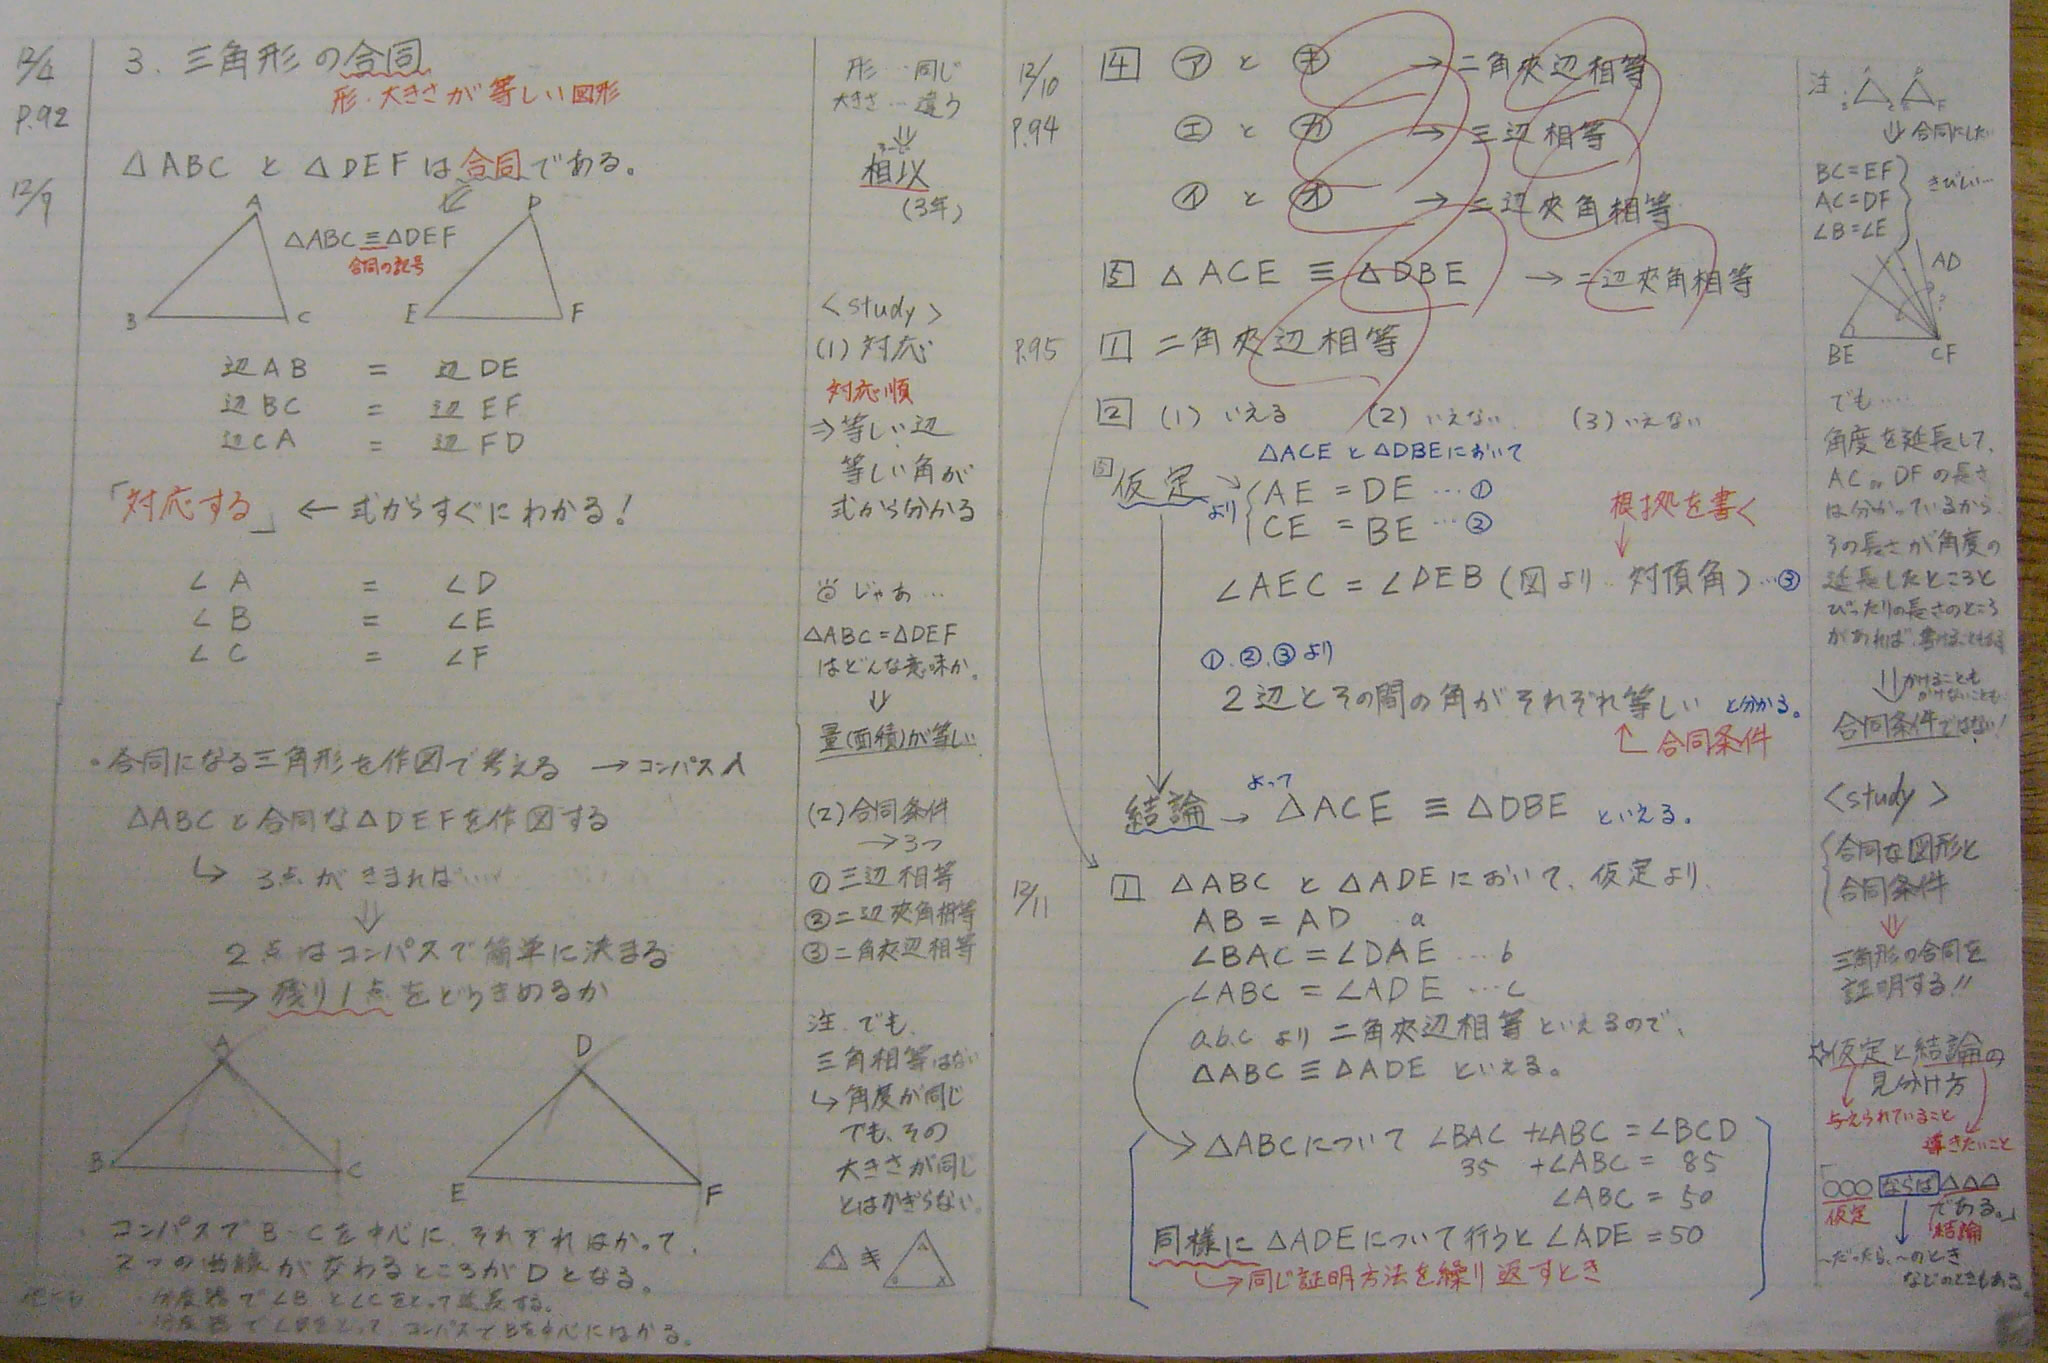 12/6
P.92
12/9
3. 三角形の合同
形・大きさが等しい図形
△ABC と △DEFは合同である。
A
B
C
△ABC≡△DEF
合同の記号
D
E
F
辺AB = 辺DE
辺BC = 辺EF
辺CA = 辺FD
「対応する」 ← 式からすぐにわかる!
∠A = ∠D
∠B = ∠E
∠C = ∠F
・合同になる三角形を作図で考える → コンパス
△ABCと合同な△DEFを作図する
↳ 3点がきまれば…
⇓
2点はコンパスで簡単に決まる
⇒ 残り1点をどうきめるか
A
B
C
D
E
F
コンパスでB・Cを中心に、それぞれはかって、
2つの曲線が交わるところがDとなる。
・分度器で∠Bと∠Cをとって延長する。
コンパスでBを中心にはかる。
形…同じ
大きさ…違う
⇓
相似
(3年)
<study>
(1) 対応
対応順
⇒等しい辺
等しい角が
式から分かる
じゃあ…
△ABC=△DEF
はどんな意味か。
⇓
量(面積)が等しい
(2) 合同条件
→3つ
①三辺相等
②二辺夾角相等
③二角夾辺相等
注. でも、
三角相等はない
↳ 角度が同じ
でも、その
大きさが同じ
とはかぎらない。
△ ≠ △
12/10
P.94
4 ㋐ と ㋖ → 二角夾辺相等
㋓ と ㋕ → 三辺相等
㋑ と ㋔ → 二辺夾角相等
5 △ACE ≡ △DBE → 二辺夾角相等
P.95
1 二角夾辺相等
2 (1) いえる (2) いえない (3) いえない
△ACE と △DBEにおいて
仮定より
AE = DE …①
CE = BE …②
根拠を書く
∠AEC = ∠DEB (図より…対頂角)…③
①、②、③より
2辺とその間の角がそれぞれ等しい と分かる。
合同条件
よって
結論 → △ACE ≡ △DBE といえる。
12/11
1 △ABC と △ADEにおいて、仮定より、
AB = AD a
∠BAC = ∠DAE …b
∠ABC = ∠ADE …c
a.b.c より 二角夾辺相等といえるので、
△ABC ≡ △ADE といえる。
△ABCについて ∠BAC +∠ABC = ∠BCD
35 +∠ABC = 85
∠ABC = 50
同様に △ADEについて行うと ∠ADE = 50
↳同じ証明方法を繰り返すとき
注
⇓ 合同にしたい
BC=EF
AC=DF
∠B=∠E
きびしい…
AD
BE
CF
でも…
角度を延長して、
AC or DFの長さ
は分かっているから、
その長さが角度の
延長したところと
ぴったりの長さのところ
があれば、
かけることも
かけないことも
合同条件ではない!
<study>
合同な図形と
合同条件
⇓
三角形の合同を
証明する!!
☆仮定と結論の
見分け方
与えられていること
導きたいこと
「○○○ならば△△△
である。」
仮定
結論
~だったら、~のとき
などのときもある。